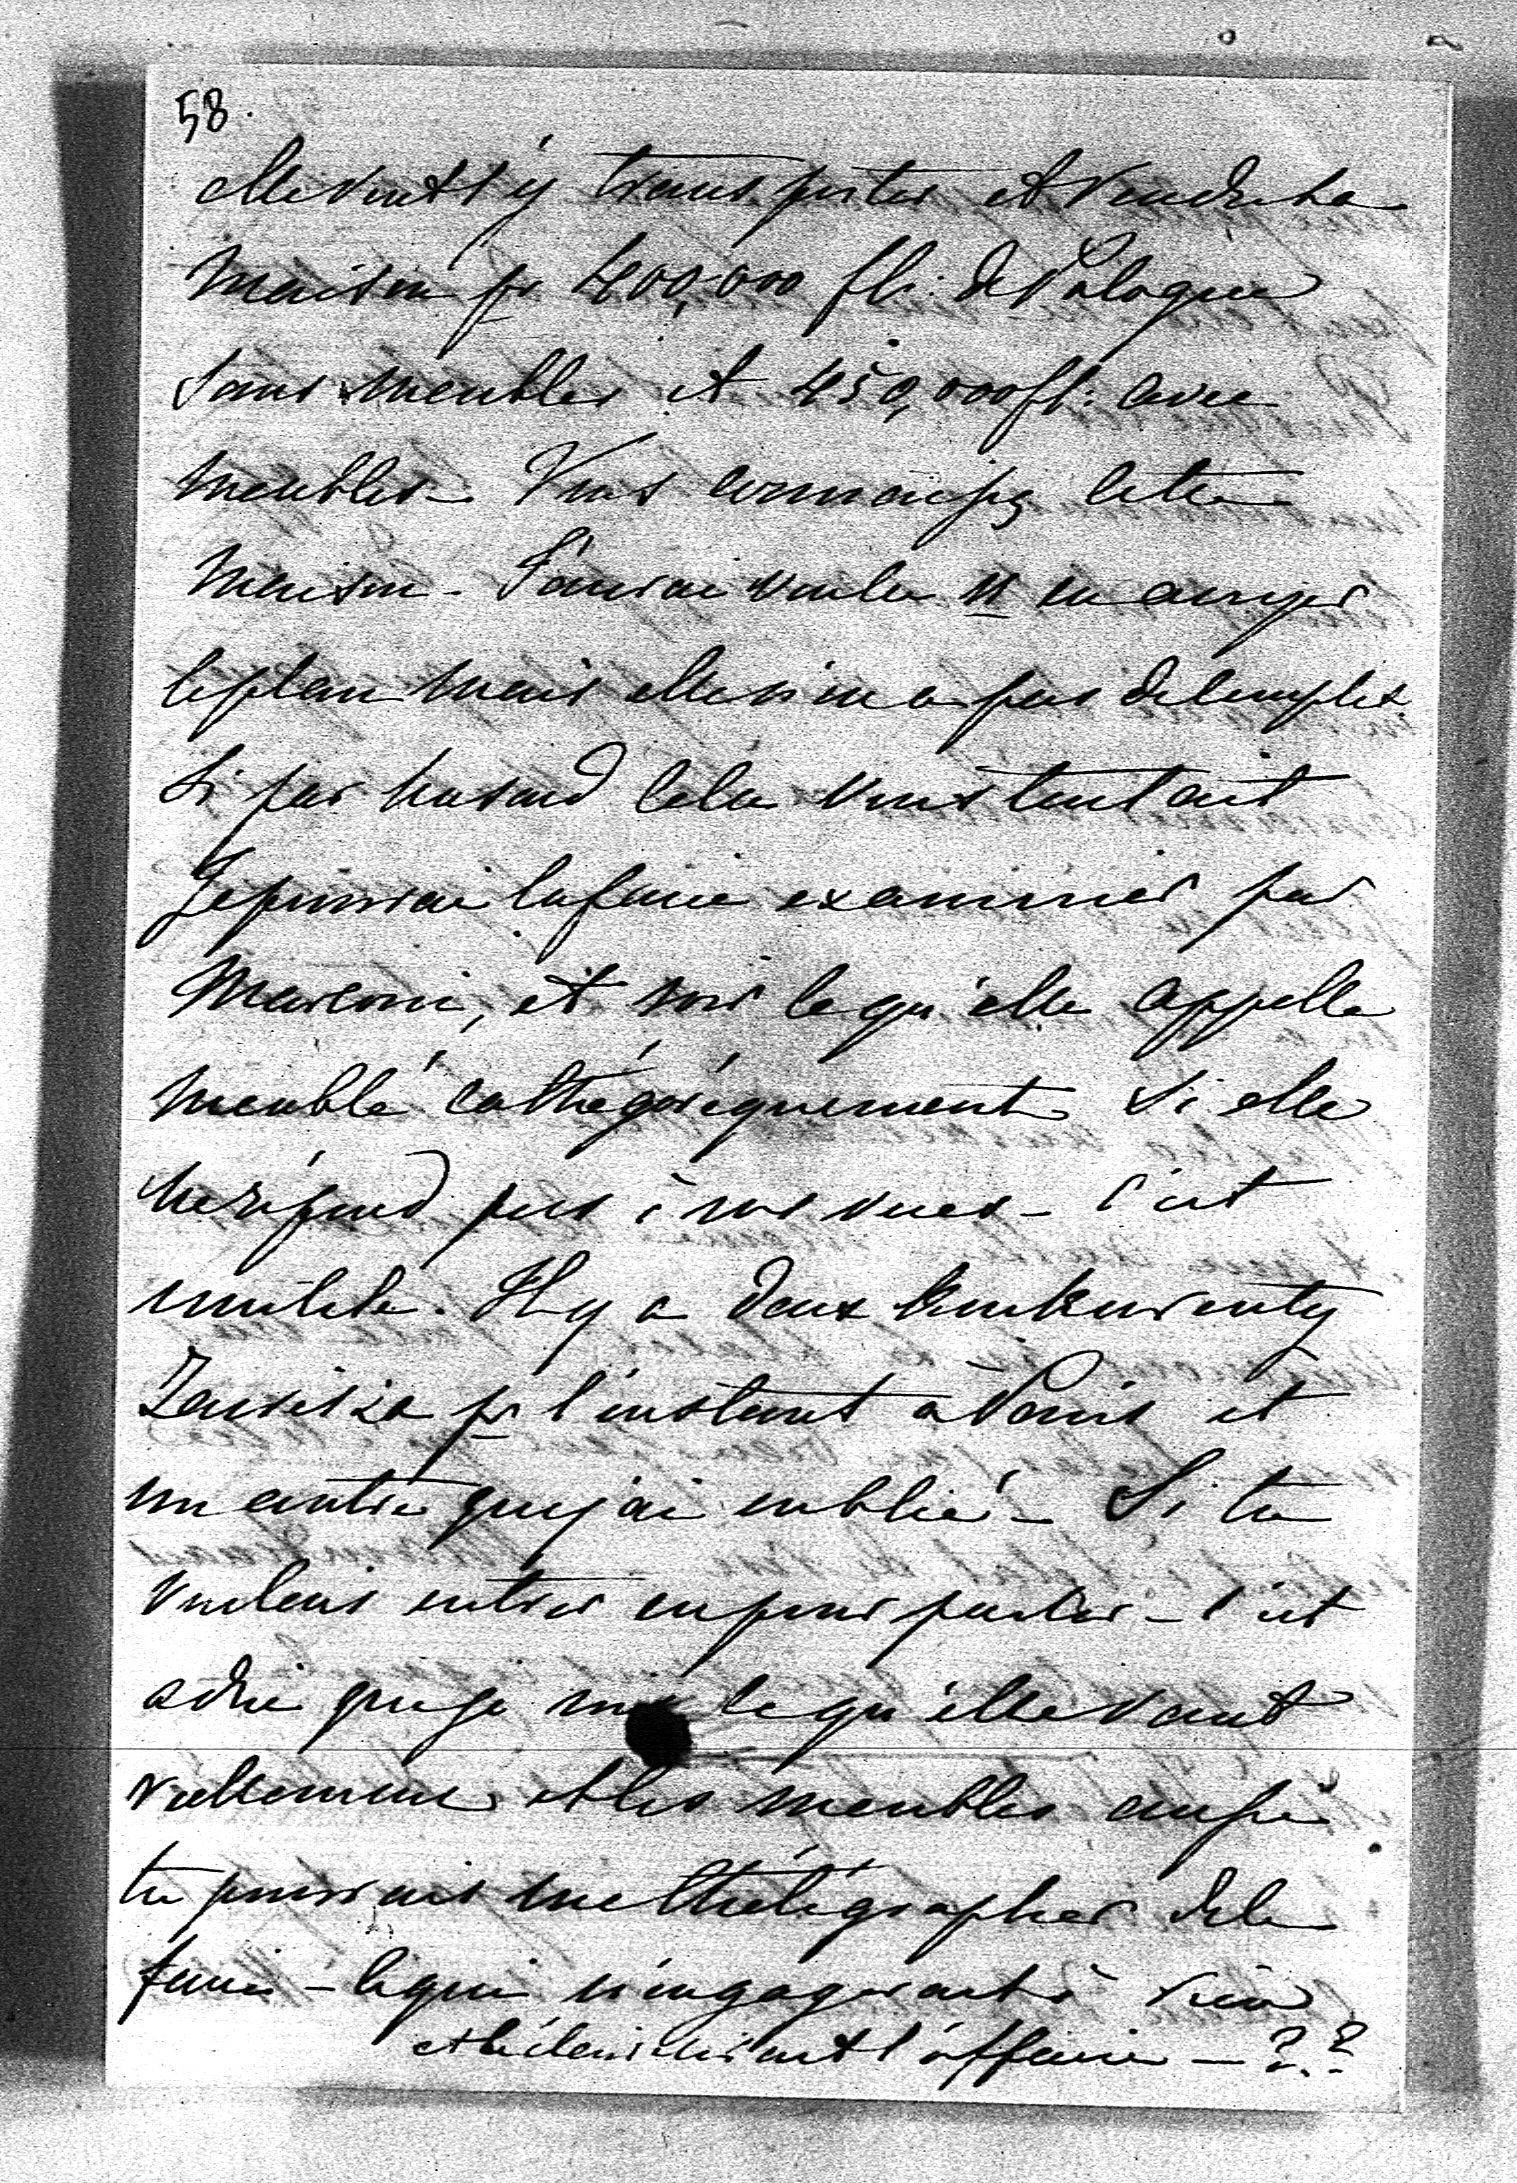 58.
elle veut s'y transporter et vendre sa
maison pr 400,000 fl: de Pologne
sans meubles et 450,000 fl: avec
meubles - Vous connaissez cette
maison - J'aurai voulu en
le plan mais elle n'en a pas de complet
Si par hasard cela vous tentait
Je pourrai la faire examiner par
Marconi, et voir ce qu'elle appelle
meublé cathégoriquement Si elle
ne répond pas à vos vues - c'est
inutile. Il y a deux konkurenty
Zawisza pr l'instant à Paris et
un autre que j'ai oublié - Si tu
voulais entrer en pourparler - c'est
à dire que je voie ce qu'elle vaut
réellement et les meubles aussi
tu pourrais me thélégrapher de le
faire - ce qui n'engagerait à rien
et éclaircirait l'affaire - ? ?